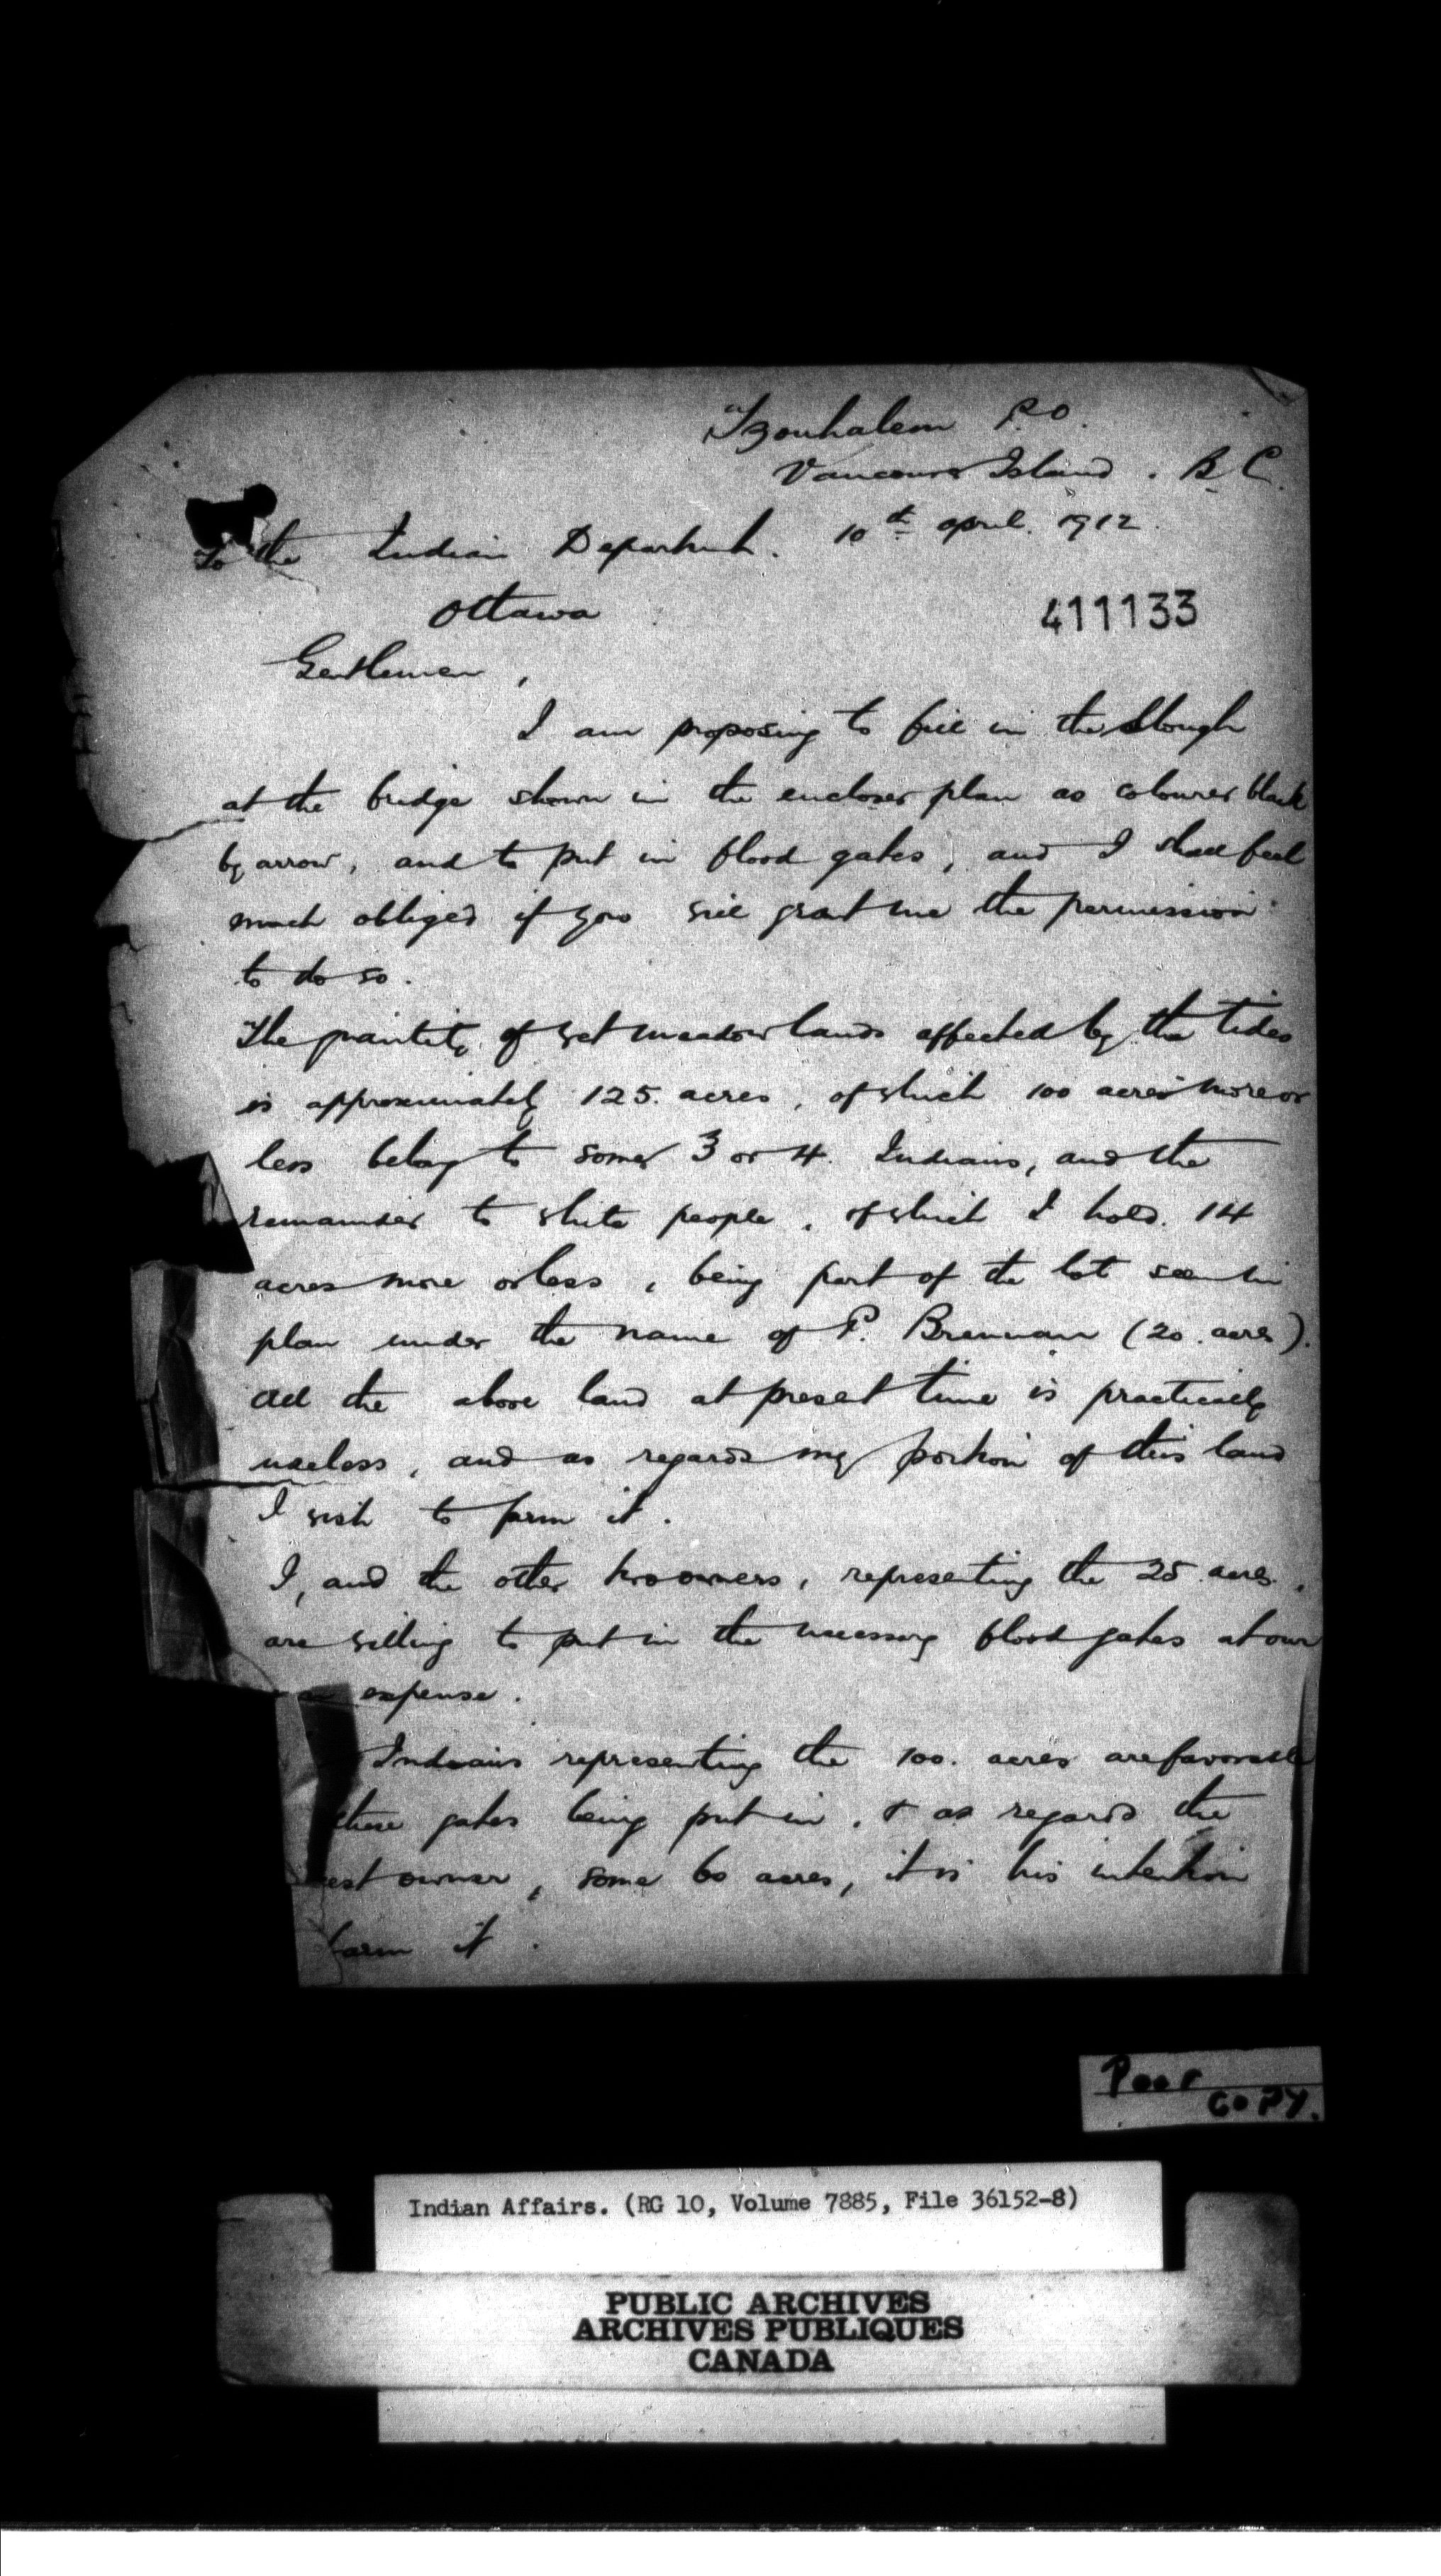 Tzouhalem P.O.
Vancouver Island. B.C.
10th April. 1912.
To the Indian Department.
Ottawa
411133
Gentlemen,
I am proposing to fill in the slough
at the bridge shown in the enclosed plan as coloured black
by arrow, and to put in flood gates, and I shall feel
much obliged if you will grant me the permission
to do so.
The quantity of wet meadow lands affected by the tides
is approximately 125. acres, of which 100 acres more or
less belong to some 3 or 4. Indians, and the
remainder to white people, of which I hold. 14
acres more or less, being part of the lot seen in
plan under the name of P. Brennan (20. acres).
All the above land at present time is practically
useless, and as regards my portion of this land
I wish to farm it.
I, and the other two owners, representing the 25. acres,
are willing to put in the necessary flood gates at our
expense.
Indians representing the 100. acres are favorable
these gates being put in, & as regards the
est owner, some 60 acres, it is his intention
farm it.
Poor
COPY.
Indian Affairs. (RG 10, Volume 7885, File 36152-8)
PUBLIC ARCHIVES
ARCHIVES PUBLIQUES
CANADA